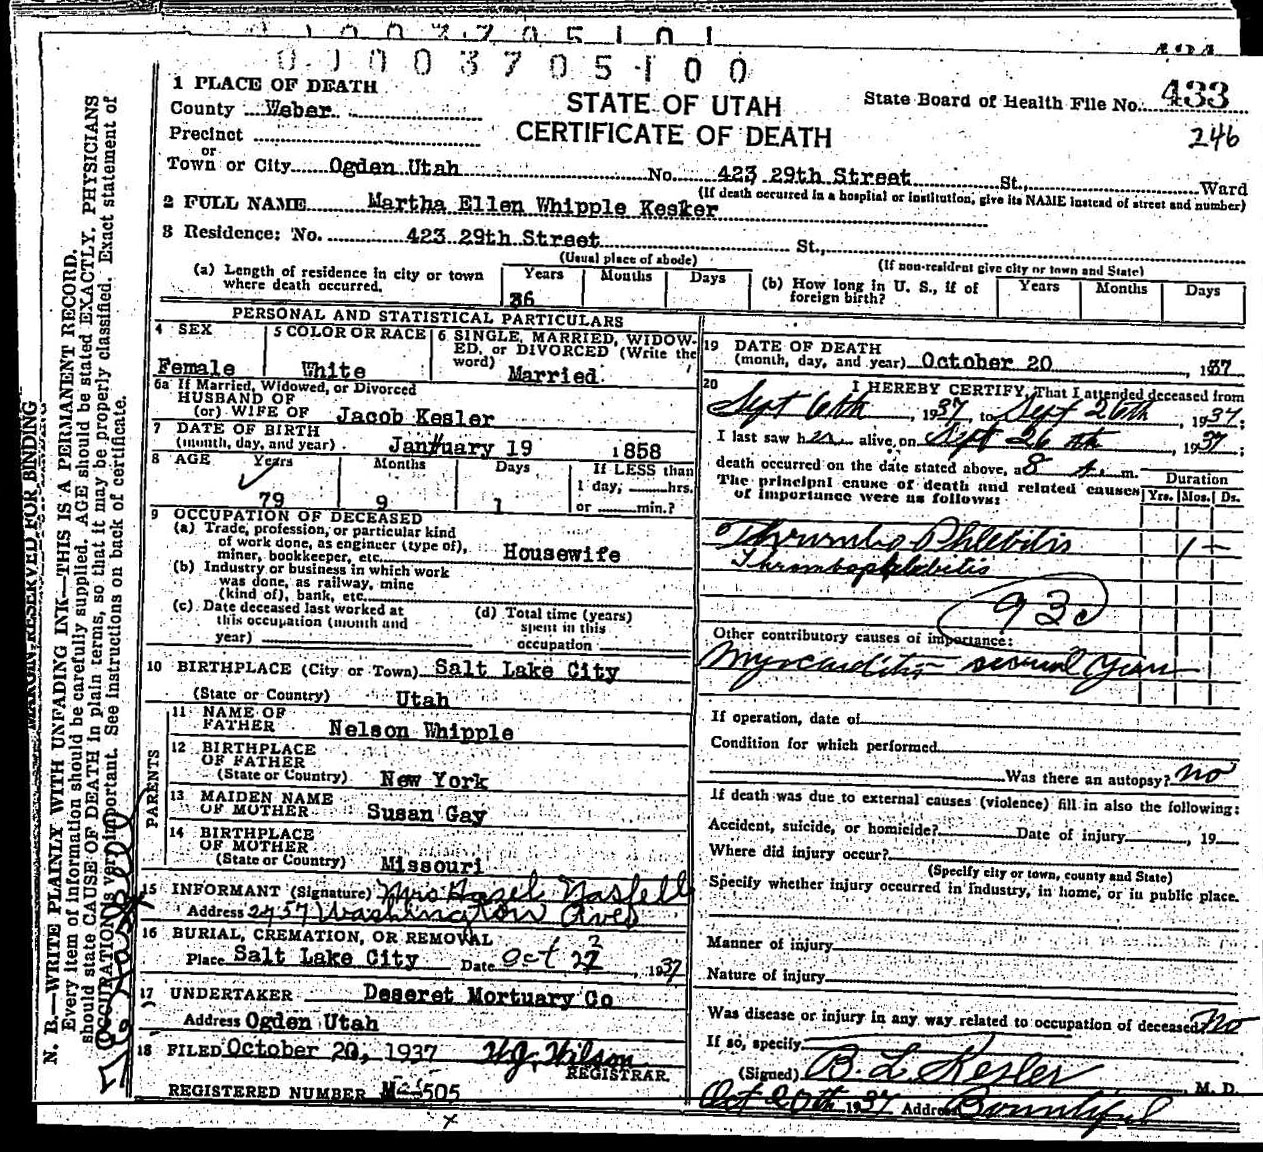 01003705101
0100370510 0
1 PLACE OF DEATH
County Weber
Precinct
or
Town or City Ogden Utah No. 423 29th Street St., Ward
STATE OF UTAH
CERTIFICATE OF DEATH
State Board of Health File No. 433
246
(If death occurred in a hospital or institution, give its NAME instead of street and number)
2 FULL NAME Martha Ellen Whipple Kesker
3 Residence: No. 423 29th Street St.,
(Usual place of abode)
(If non-resident give city or town and State)
(a) Length of residence in city or town where death occurred. Years 36 Months Days
(b) How long in U. S., if of foreign birth? Years Months Days
PERSONAL AND STATISTICAL PARTICULARS
4 SEX
Female
5 COLOR OR RACE
White
6 SINGLE, MARRIED, WIDOW-
ED, or DIVORCED (Write the
word) Married
6a If Married, Widowed, or Divorced
HUSBAND OF
(or) WIFE OF Jacob Kesler
7 DATE OF BIRTH
(month, day, and year) January 19 1858
8 AGE Years Months Days If LESS than
79 9 1 1 day, hrs.
or min.?
9 OCCUPATION OF DECEASED
(a) Trade, profession, or particular kind
of work done, as engineer (type of),
miner, bookkeeper, etc. Housewife
(b) Industry or business in which work
was done, as railway, mine
(kind of), bank, etc.
(c) Date deceased last worked at
this occupation (month and
year)
(d) Total time (years)
spent in this
occupation
10 BIRTHPLACE (City or Town) Salt Lake City
(State or Country) Utah
PARENTS
11 NAME OF
FATHER Nelson Whipple
12 BIRTHPLACE
OF FATHER
(State or Country) New York
13 MAIDEN NAME
OF MOTHER Susan Gay
14 BIRTHPLACE
OF MOTHER
(State or Country) Missouri
15 INFORMANT (Signature) Mrs Hazel
Address 2757 Washington Ave
16 BURIAL, CREMATION, OR REMOVAL
Place Salt Lake City Date Oct 22, 1937
17 UNDERTAKER Deseret Mortuary Co
Address Ogden Utah
18 FILED October 20, 1937 Wilson
REGISTRAR.
REGISTERED NUMBER M 505
19 DATE OF DEATH
(month, day, and year) October 20, 1937
20 I HEREBY CERTIFY, That I attended deceased from
Sept 6th, 1937 to Sept 26th, 1937;
I last saw her alive on Sept 26th, 1937;
death occurred on the date stated above, at 8 a. m.
The principal cause of death and related causes
of importance were as follows:
Duration
Yrs. Mos. Ds.
Thrombo Phlebitis 1 —
Thrombophlebitis
93c
Other contributory causes of importance:
Myocarditis several years
If operation, date of
Condition for which performed
Was there an autopsy? no
If death was due to external causes (violence) fill in also the following:
Accident, suicide, or homicide? Date of injury, 19
Where did injury occur?
(Specify city or town, county and State)
Specify whether injury occurred in industry, in home, or in public place.
Manner of injury
Nature of injury
Was disease or injury in any way related to occupation of deceased? No
If so, specify
(Signed) B. L. Kesler M. D.
Oct 20th 1937 Address Bountiful
MARGIN RESERVED FOR BINDING
N. B.—WRITE PLAINLY WITH UNFADING INK—THIS IS A PERMANENT RECORD.
Every item of information should be carefully supplied. AGE should be stated EXACTLY. PHYSICIANS
should state CAUSE OF DEATH in plain terms, so that it may be properly classified. Exact statement of
OCCUPATION is very important. See instructions on back of certificate.